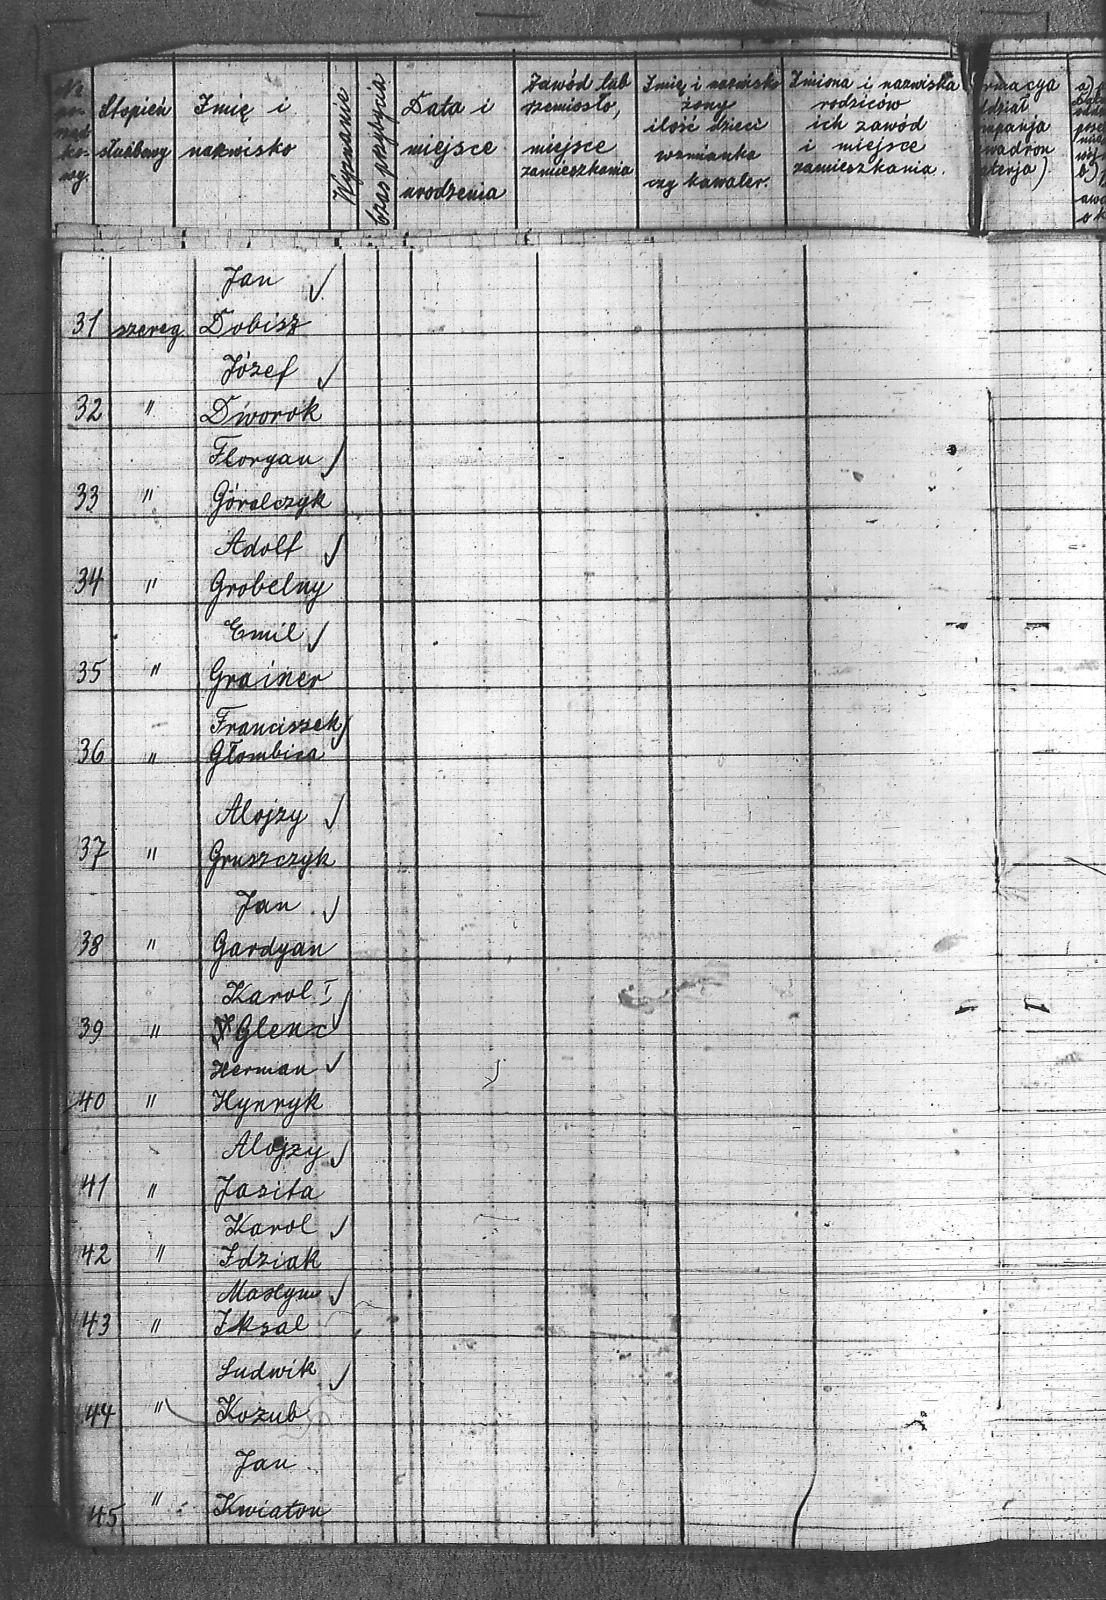 Stopień służbowy
Imię i nazwisko
Wyznanie
Czas przybycia
Data i miejsce urodzenia
Zawód lub rzemiosło, miejsce zamieszkania
Imię i nazwisko żony ilość dzieci wzmianka czy kawaler.
Imiona i nazwiska rodziców ich zawód i miejsce zamieszkania.
Jan
31 szereg. Dobisz
Józef
32 " Dworok
Floryan
33 " Góralczyk
Adolf
34 " Grobelny
Emil
35 " Grainer
Franciszek
36 " Głombica
Alojzy
37 " Gruszczyk
Jan
38 " Gardyan
Karol I
39 " Glenc
Herman
40 " Hynryk
Alojzy
41 " Jasita
Karol
42 " Idziak
43 " Iksal
Ludwik
44 " Kozub
Jan
45 " Kwiaton